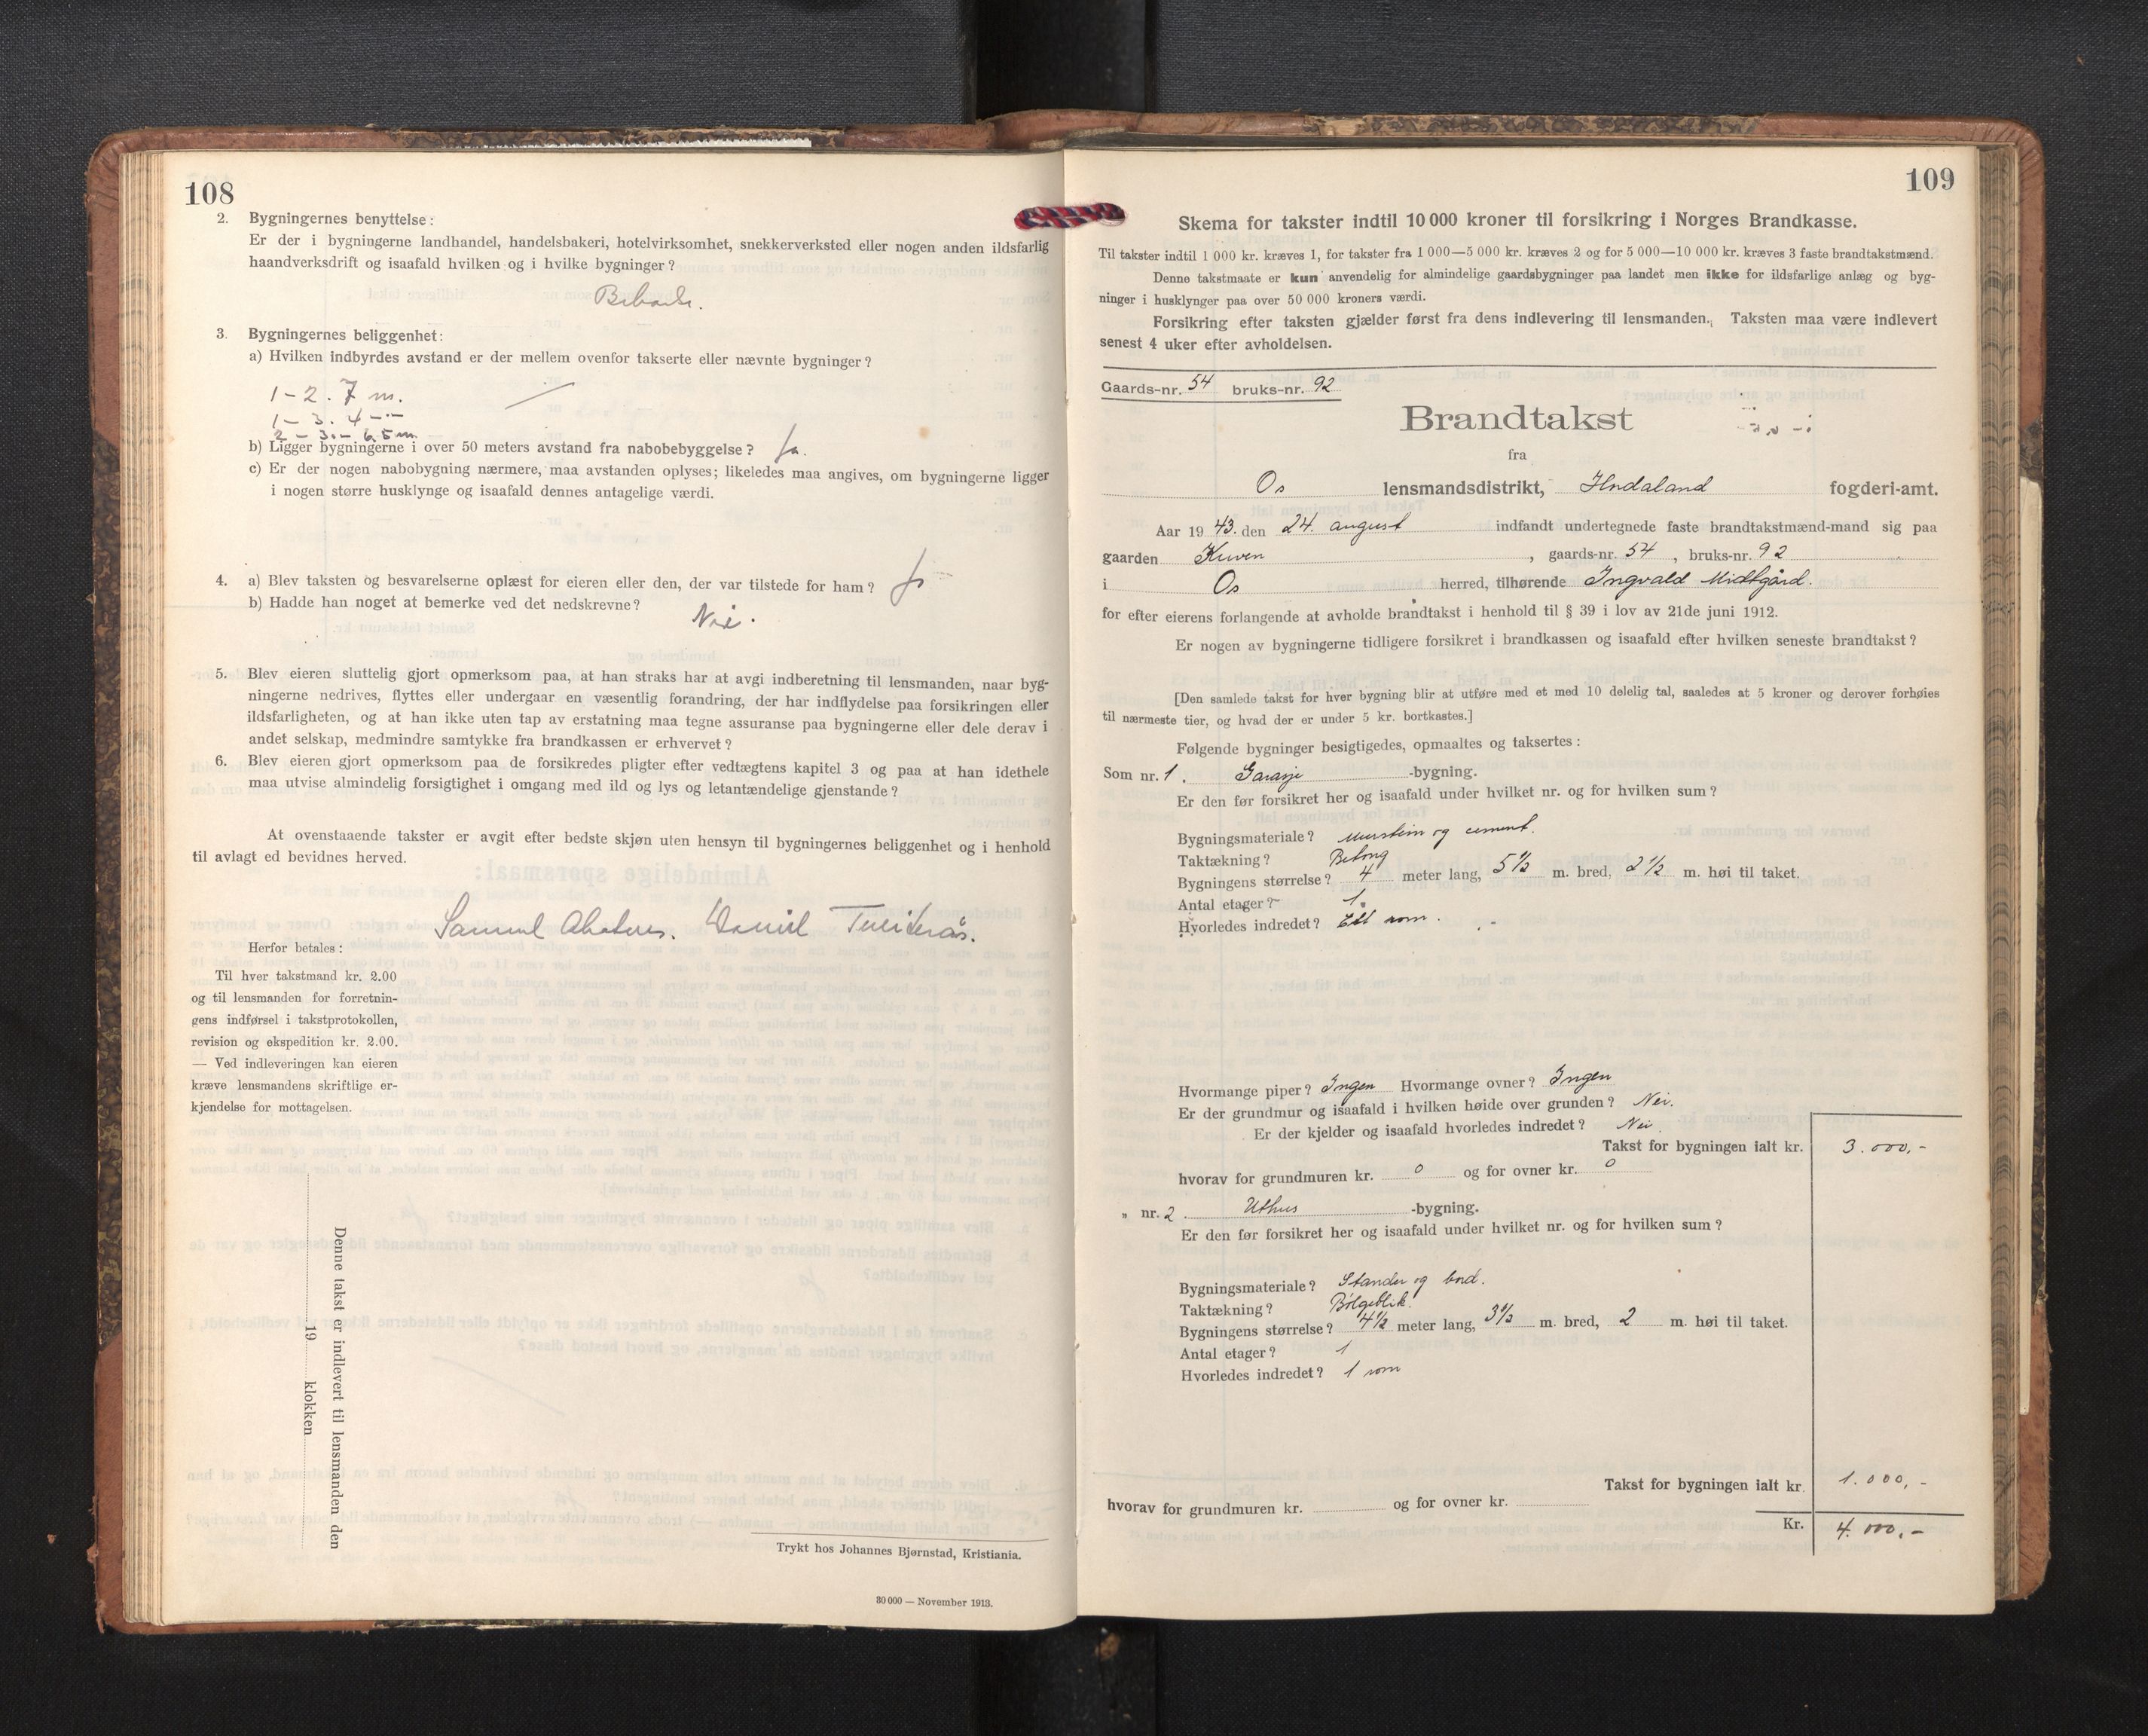 108
2. Bygningernes benyttelse:
Er der i bygningerne landhandel, handelsbakeri, hotelvirksomhet, snekkerverksted eller nogen anden ildsfarlig
haandverksdrift og isaafald hvilken og i hvilke bygninger?
3. Bygningernes beliggenhet:
a) Hvilken indbyrdes avstand er der mellem ovenfor takserte eller nævnte bygninger?
1 - 2. 7 m.
1 - 3. 4 -"-
2 - 3. - 6.5 m.
b) Ligger bygningerne i over 50 meters avstand fra nabobebyggelse? Ja.
c) Er der nogen nabobygning nærmere, maa avstanden oplyses; likeledes maa angives, om bygningerne ligger
i nogen større husklynge og isaafald dennes antagelige værdi.
4. a) Blev taksten og besvarelserne oplæst for eieren eller den, der var tilstede for ham? Ja
b) Hadde han noget at bemerke ved det nedskrevne?
Nei.
5. Blev eieren sluttelig gjort opmerksom paa, at han straks har at avgi indberetning til lensmanden, naar byg-
ningerne nedrives, flyttes eller undergaar en væsentlig forandring, der har indflydelse paa forsikringen eller
ildsfarligheten, og at han ikke uten tap av erstatning maa tegne assuranse paa bygningerne eller dele derav i
andet selskap, medmindre samtykke fra brandkassen er erhvervet?
6. Blev eieren gjort opmerksom paa de forsikredes pligter efter vedtægtens kapitel 3 og paa at han idethele
maa utvise almindelig forsigtighet i omgang med ild og lys og letantændelige gjenstande?
At ovenstaaende takster er avgit efter bedste skjøn uten hensyn til bygningernes beliggenhet og i henhold
til avlagt ed bevidnes herved.
Samuel Daniel
Herfor betales:
Til hver takstmand kr. 2.00
og til lensmanden for forretnin-
gens indførsel i takstprotokollen,
revision og ekspedition kr. 2.00.
— Ved indleveringen kan eieren
kræve lensmandens skriftlige er-
kjendelse for mottagelsen.
Denne takst er indlevert til lensmanden den
19 klokken
Trykt hos Johannes Bjørnstad, Kristiania.
30 000 — November 1913.
109
Skema for takster indtil 10 000 kroner til forsikring i Norges Brandkasse.
Til takster indtil 1 000 kr. kræves 1, for takster fra 1 000—5 000 kr. kræves 2 og for 5 000—10 000 kr. kræves 3 faste brandtakstmænd.
Denne takstmaate er kun anvendelig for almindelige gaardsbygninger paa landet men ikke for ildsfarlige anlæg og byg-
ninger i husklynger paa over 50 000 kroners værdi.
Forsikring efter taksten gjælder først fra dens indlevering til lensmanden. Taksten maa være indlevert
senest 4 uker efter avholdelsen.
Gaards-nr. 54 bruks-nr. 92
Brandtakst
fra
Os lensmandsdistrikt, Hordaland fogderi-amt.
Aar 19 43. den 24. august indfandt undertegnede faste brandtakstmænd-mand sig paa
gaarden Kuven, gaards-nr. 54, bruks-nr. 92
i Os herred, tilhørende Ingvald Midtgård.
for efter eierens forlangende at avholde brandtakst i henhold til § 39 i lov av 21de juni 1912.
Er nogen av bygningerne tidligere forsikret i brandkassen og isaafald efter hvilken seneste brandtakst?
[Den samlede takst for hver bygning blir at utføre med et med 10 delelig tal, saaledes at 5 kroner og derover forhøies
til nærmeste tier, og hvad der er under 5 kr. bortkastes.]
Følgende bygninger besigtigedes, opmaaltes og taksertes:
Som nr. 1. Garasje -bygning.
Er den før forsikret her og isaafald under hvilket nr. og for hvilken sum?
Bygningsmateriale? Murstein og cement.
Taktækning? Betong
Bygningens størrelse? 4 meter lang, 5 1/2 m. bred, 2 1/2 m. høi til taket.
Antal etager? 1.
Hvorledes indredet? Ett rom.
Hvormange piper? Ingen Hvormange ovner? Ingen
Er der grundmur og isaafald i hvilken høide over grunden? Nei.
Er der kjelder og isaafald hvorledes indredet? Nei.
Takst for bygningen ialt kr. 3.000,-
hvorav for grundmuren kr. 0 og for ovner kr. 0
" nr. 2 Uthus -bygning.
Er den før forsikret her og isaafald under hvilket nr. og for hvilken sum?
Bygningsmateriale? Stander og bord.
Taktækning? Bølgeblik.
Bygningens størrelse? 4 1/2 meter lang, 3 1/2 m. bred, 2 m. høi til taket.
Antal etager? 1
Hvorledes indredet? 1 rom
Takst for bygningen ialt kr. 1.000,-
hvorav for grundmuren kr. og for ovner kr.
Kr. 4.000,-